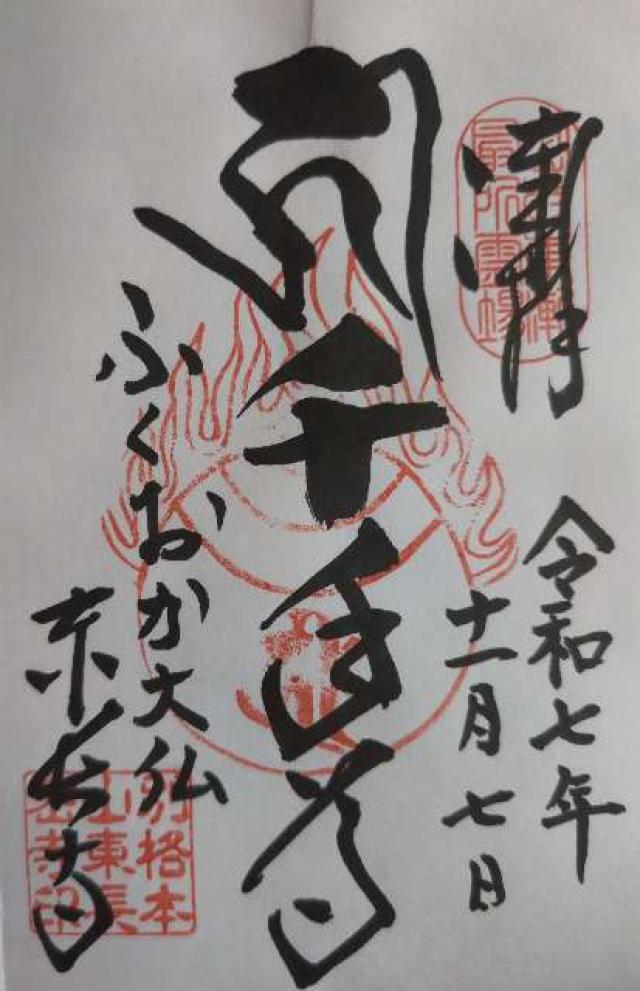 令和七年
十一月七日
千手尊
ふくおか大仏
東長寺
別格本
山東長
密寺印